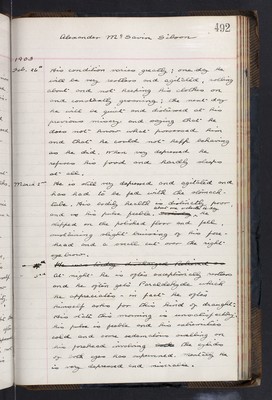 492
Alexander McGavin Gibson
1903
Feb. 16th His condition varies greatly; one day he
will be very restless and agitated, rolling
about and not keeping his clothes on
and constantly groaning; the next day
he will be quiet and distressed at his
previous misery and saying that he
does not know what possessed him
and that he could not help behaving
as he did. When very depressed he
refuses his food and hardly sleeps
at all.
March 1st He is still very depressed and agitated and
has had to be fed with the stomach
tube. His bodily health is distinctly poor
and his pulse feeble.
slipped on the polished floor and fell
sustaining slight bruising of his fore-
head and a small cut over the right
eyebrow.
At night he is often exceptionally restless
and he often gets Paraldehyde which
he appreciates: in fact he often
himself asks for this kind of draught.
His state this morning is unsatisfactory;
his pulse is feeble and his extremities
cold and some extensive swelling on
his forehead involving the eyelids
of both eyes has supervened. Mentally he
is very depressed and miserable.